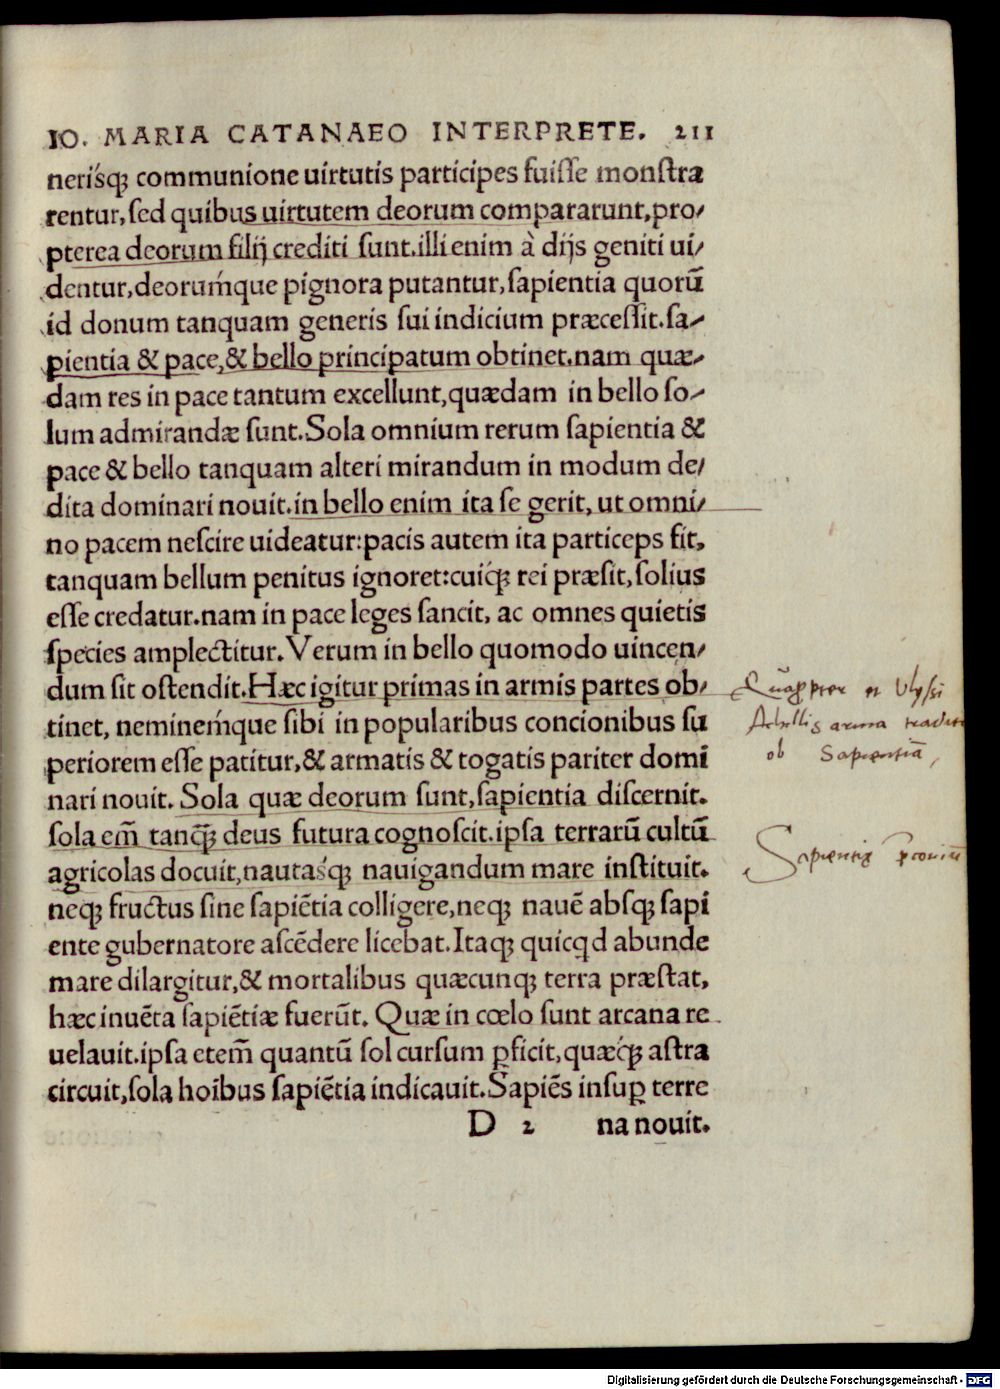 IO. MARIA CATANAEO INTERPRETE. 211
neriśq; communione uirtutis participes fuiſſe monſtra
rentur,ſed quibus uirtutem deorum compararunt,pro/
pterea deorum filij crediti ſunt.illi enim à dijs geniti ui/
dentur,deorum´que pignora putantur,ſapientia quorū
id donum tanquam generis ſui indicium præceſſit.ſa/
pientia & pace,& bello principatum obtinet.nam quæ/
dam res in pace tantum excellunt,quædam in bello ſo/
lum admirandæ ſunt.Sola omnium rerum ſapientia &
pace & bello tanquam alteri mirandum in modum de/
dita dominari nouit.in bello enim ita ſe gerit, ut omni/
no pacem neſcire uideatur:pacis autem ita particeps fit,
tanquam bellum penitus ignoret:cuiq́; rei præſit,ſolius
eſſe credatur.nam in pace leges ſancit, ac omnes quietis
ſpecies amplectitur.Verum in bello quomodo uincen/
dum ſit oſtendit.Hæc igitur primas in armis partes ob/
tinet, neminem´que ſibi in popularibus concionibus ſu
periorem eſſe patitur,& armatis & togatis pariter domi
nari nouit. Sola quæ deorum ſunt,ſapientia diſcernit.
ſola em̄ tanq̄; deus futura cognoſcit.ipſa terrarū cultū
agricolas docuit,nautaśq; nauigandum mare inſtituit.
neq; fructus ſine ſapiētia colligere,neq; nauē abſq; ſapi
ente gubernatore aſcēdere licebat.Itaq; quicqd abunde
mare dilargitur,& mortalibus quæcunq; terra præſtat,
hæc inuēta ſapiētiæ fuerūt. Quæ in cœlo ſunt arcana re
uelauit.ipſa etem̄ quantū ſol curſum ꝑficit,quæq́; aſtra
circuit,ſola hoībus ſapiētia indicauit.Sapiēs inſuꝑ terre
D 2 na nouit.
Quāpropter et Ulyſsi
Achillis arma tradita
ob Sapientiā,
Sapientię